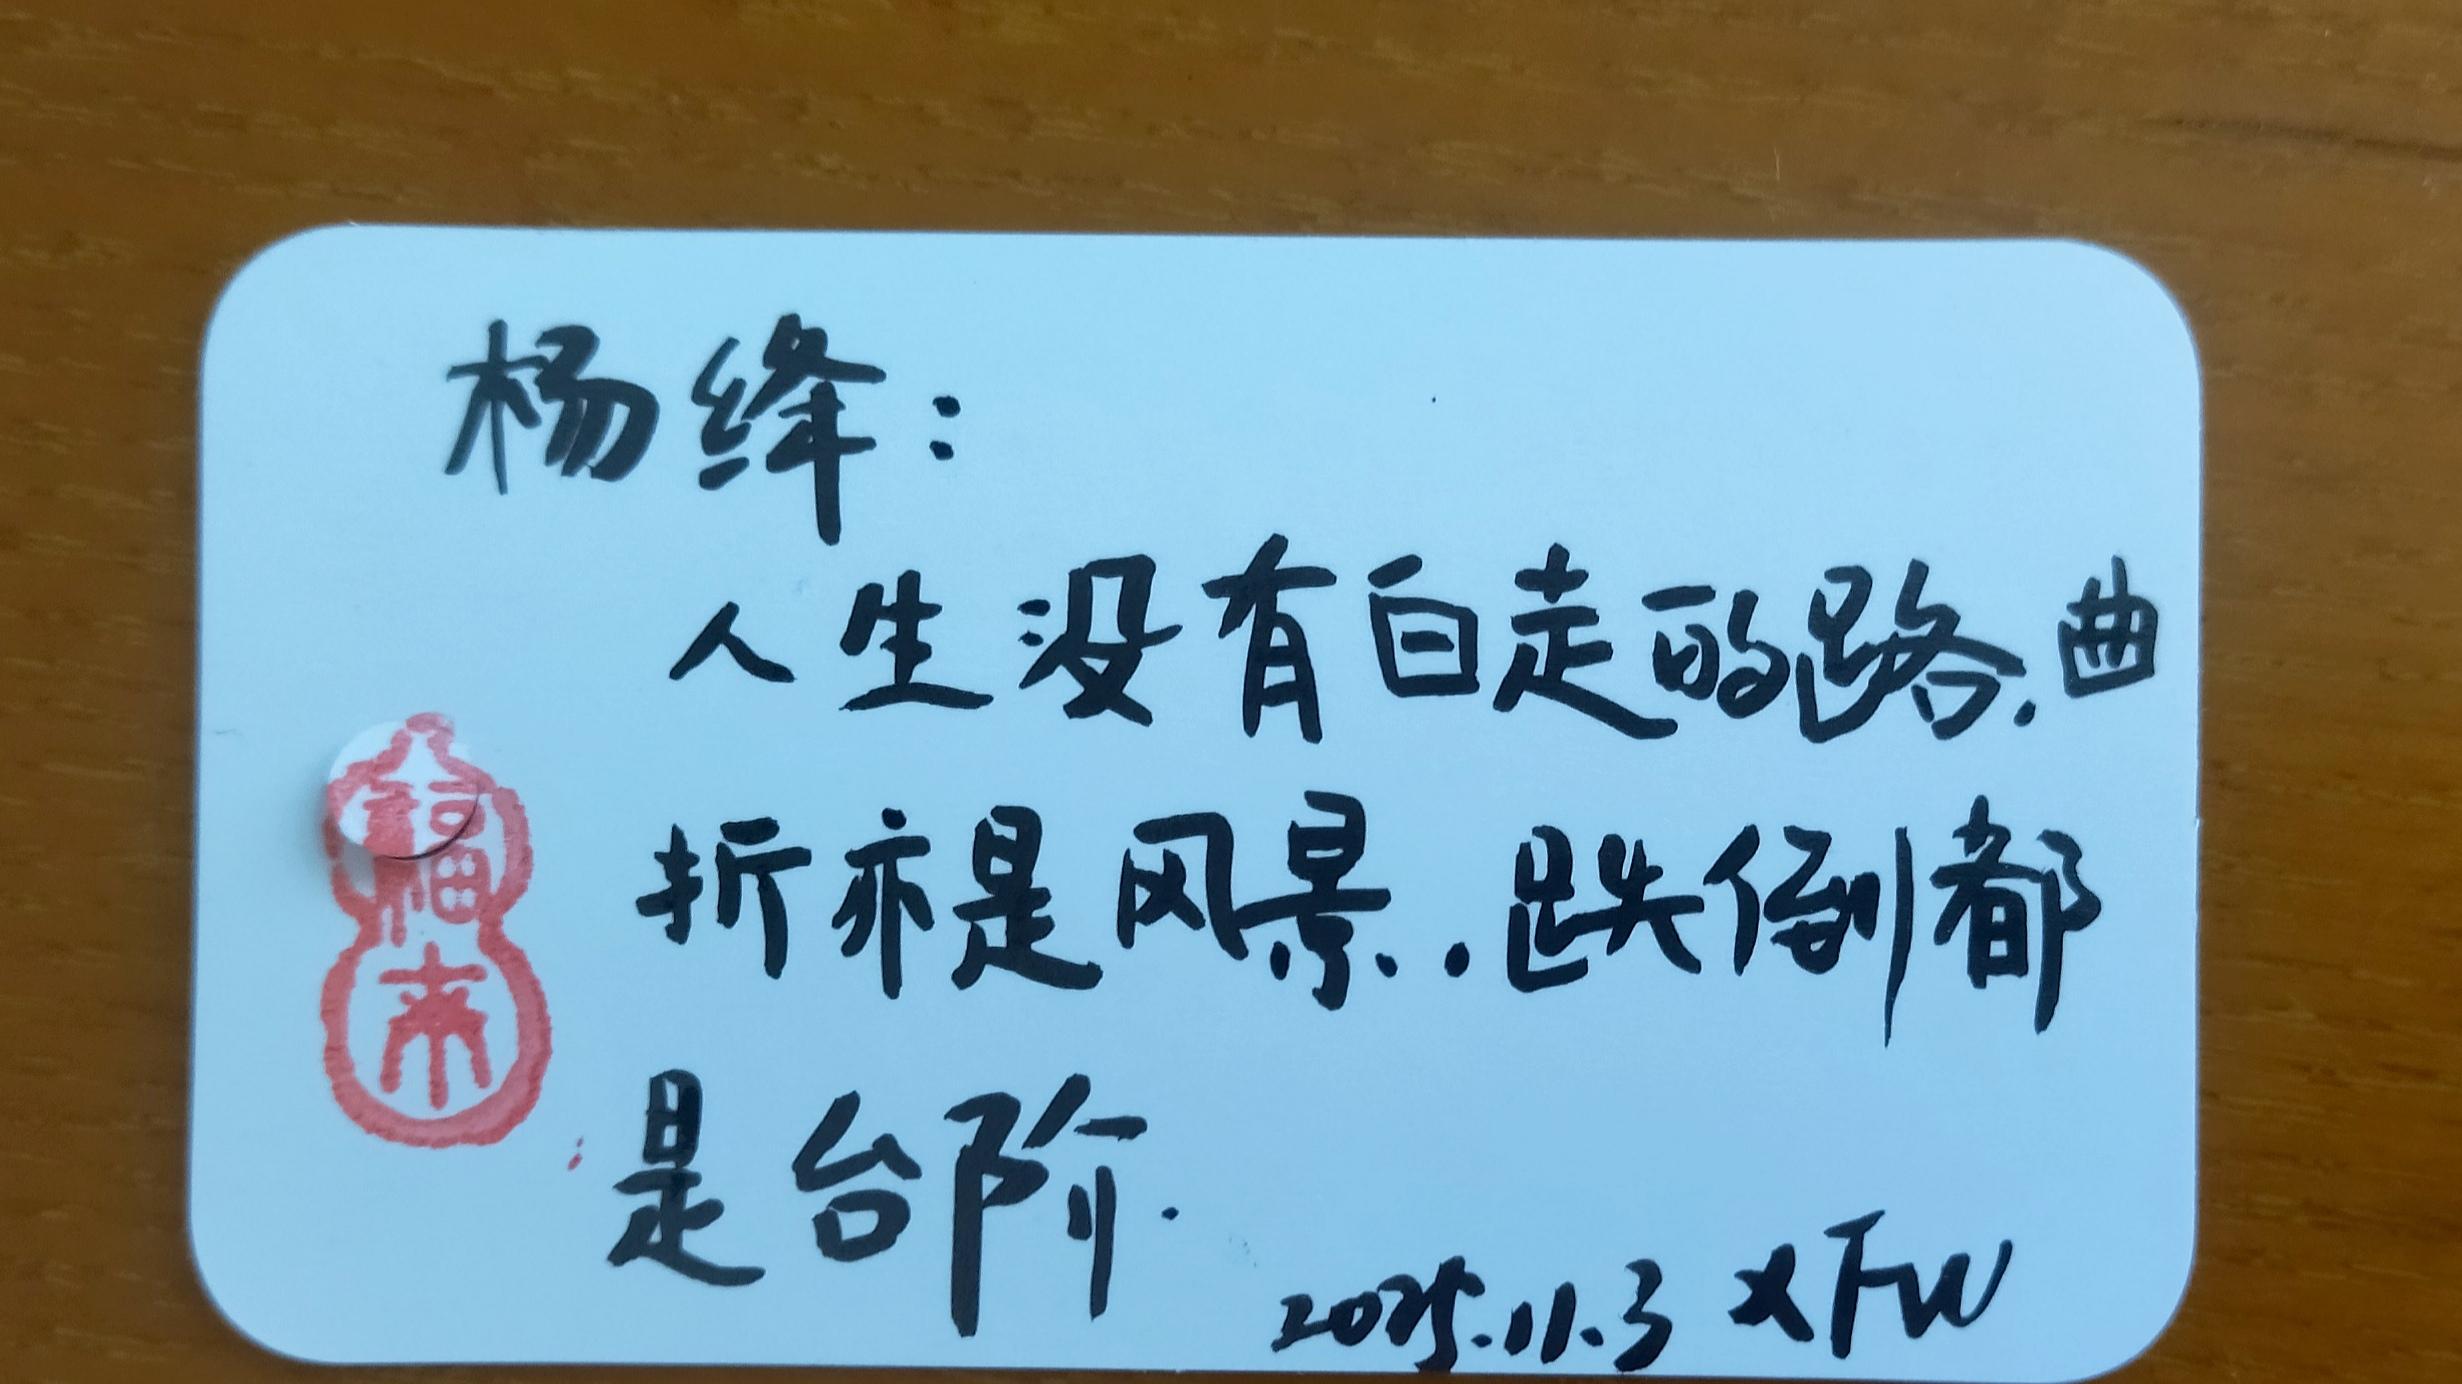 杨绛:
人生没有白走的路.曲
折亦是风景..跌倒都
是台阶.
2025.11.3 XFW
福来